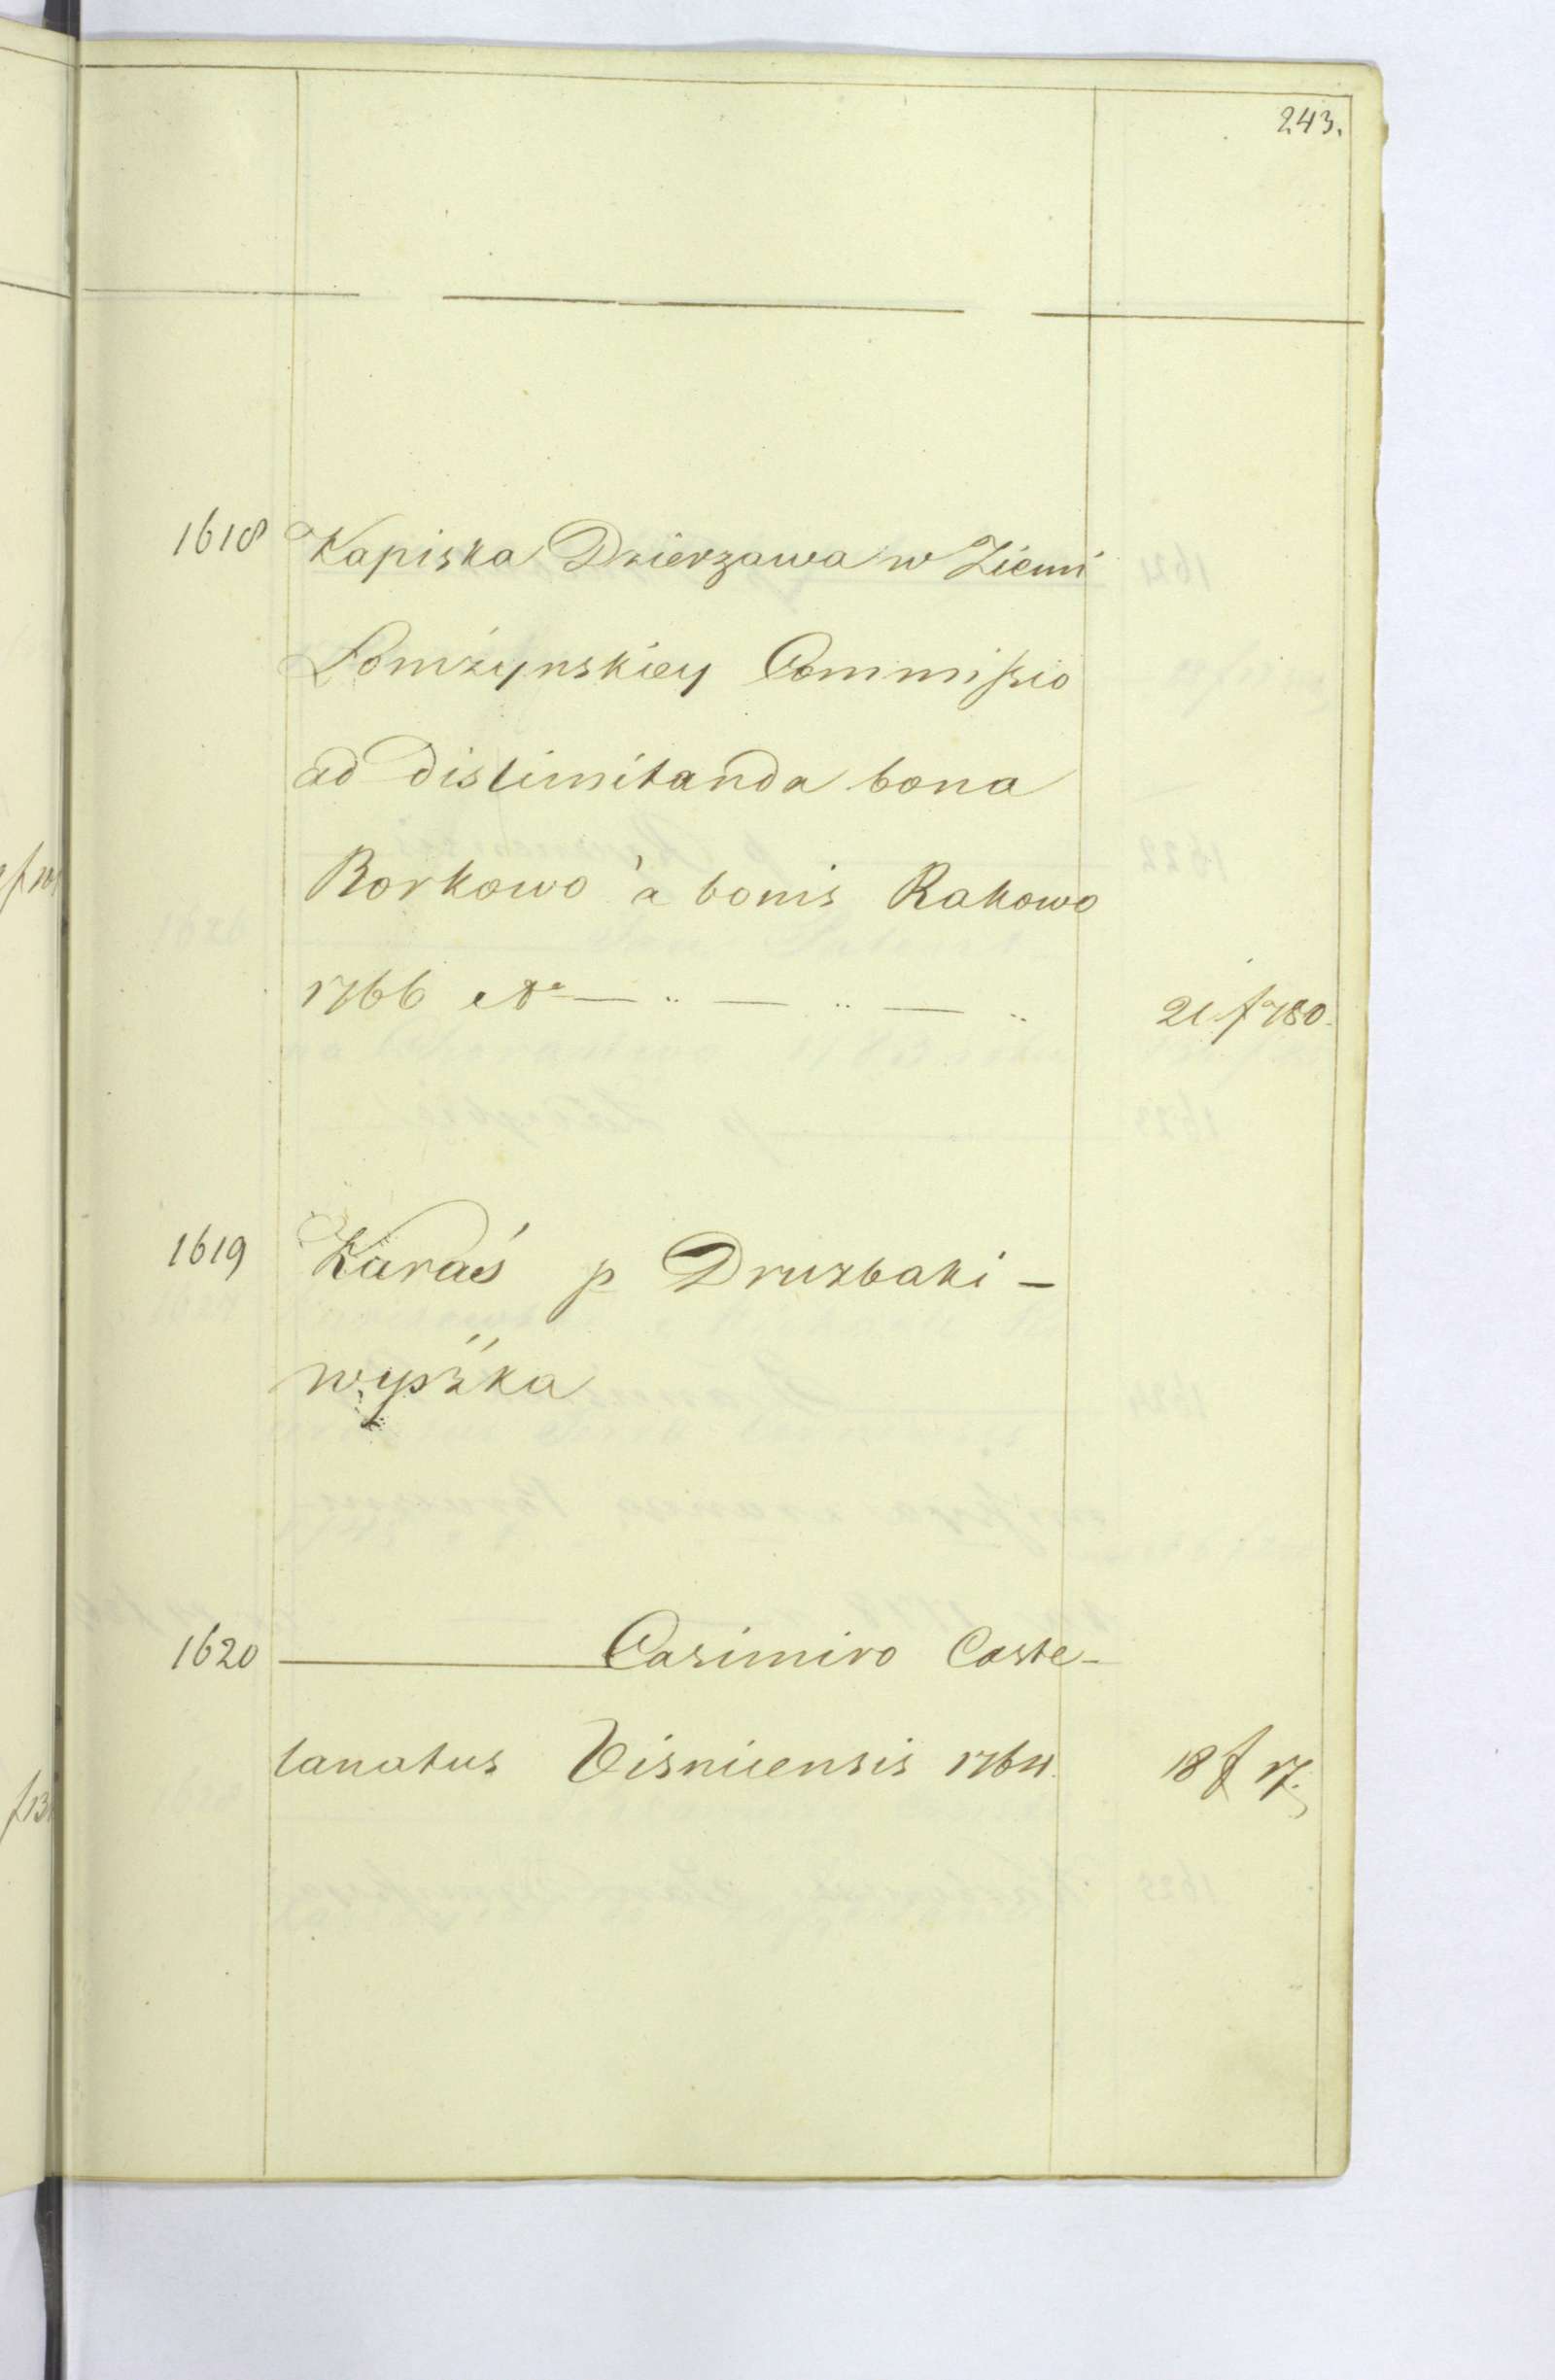 243.
1618 Kapiska Dzierzawa w Ziemi
Łomżynskiey Commissio
ad dislimitanda bona
Borkowo à bonis Rakowo
1766 etc — .. — .. — .. 21 f 780.
1619 Karaś p Druzbaki —
wyszka
1620 ——— Casimiro Caste-
lanatus Visnicensis 1764. 18 f 17.